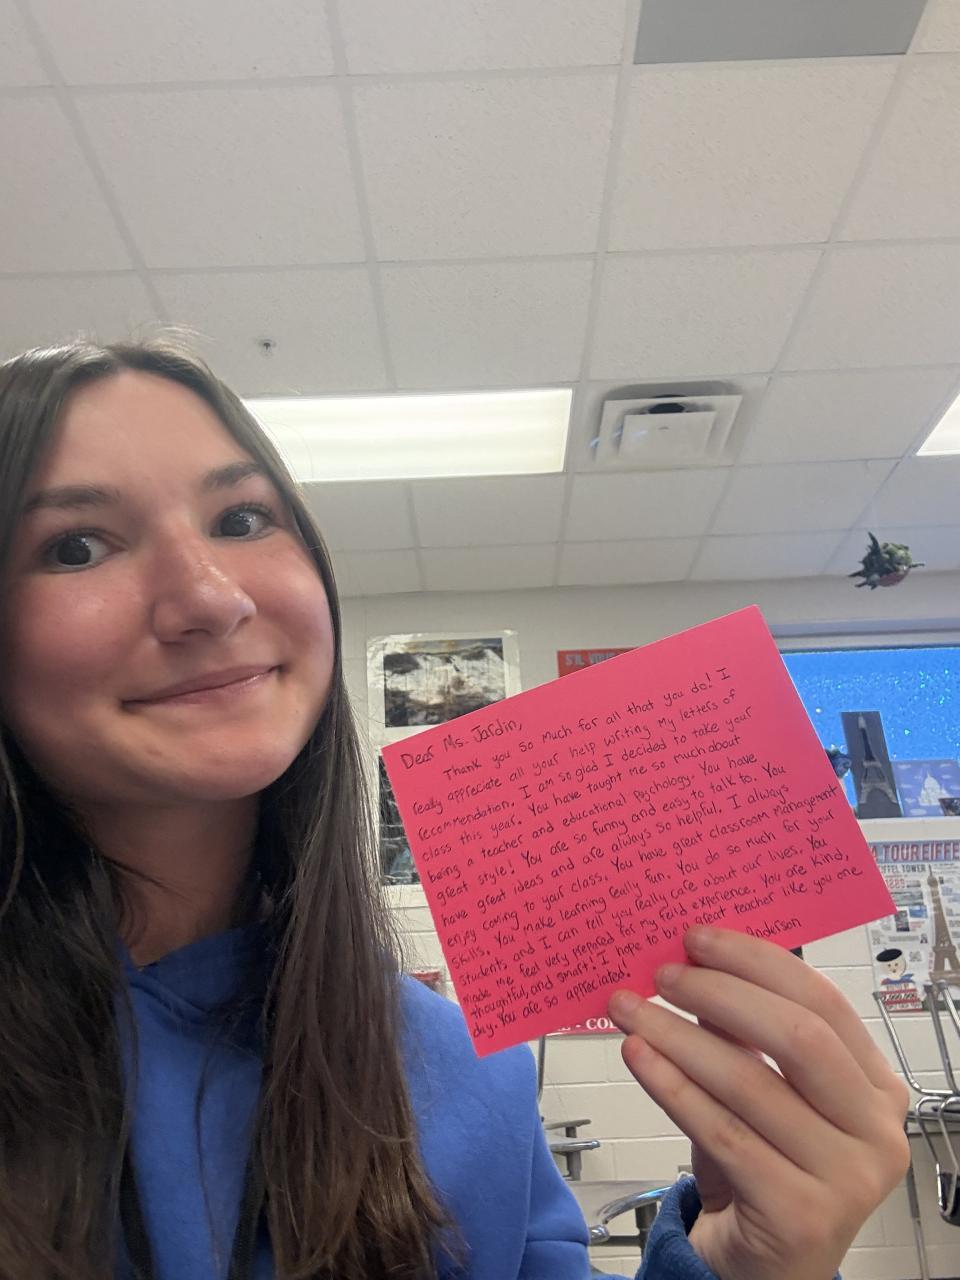 S'IL VOUS
Dear Ms. Jardin,
Thank you so much for all that you do! I
really appreciate all your help writing my letters of
recommendation. I am so glad I decided to take your
class this year. You have taught me so much about
being a teacher and educational psychology. You have
great style! You are so funny and easy to talk to. You
have great ideas and are always so helpful. I always
enjoy coming to your class. You have great classroom management
skills. You make learning really fun. You do so much for your
students and I can tell you really care about our lives. You
made me feel very prepared for my field experience. You are kind,
thoughtful, and smart! I hope to be a great teacher like you one
day. You are so appreciated!
Anderson
TOUR EIFFE
EIFFEL TOWER
1889